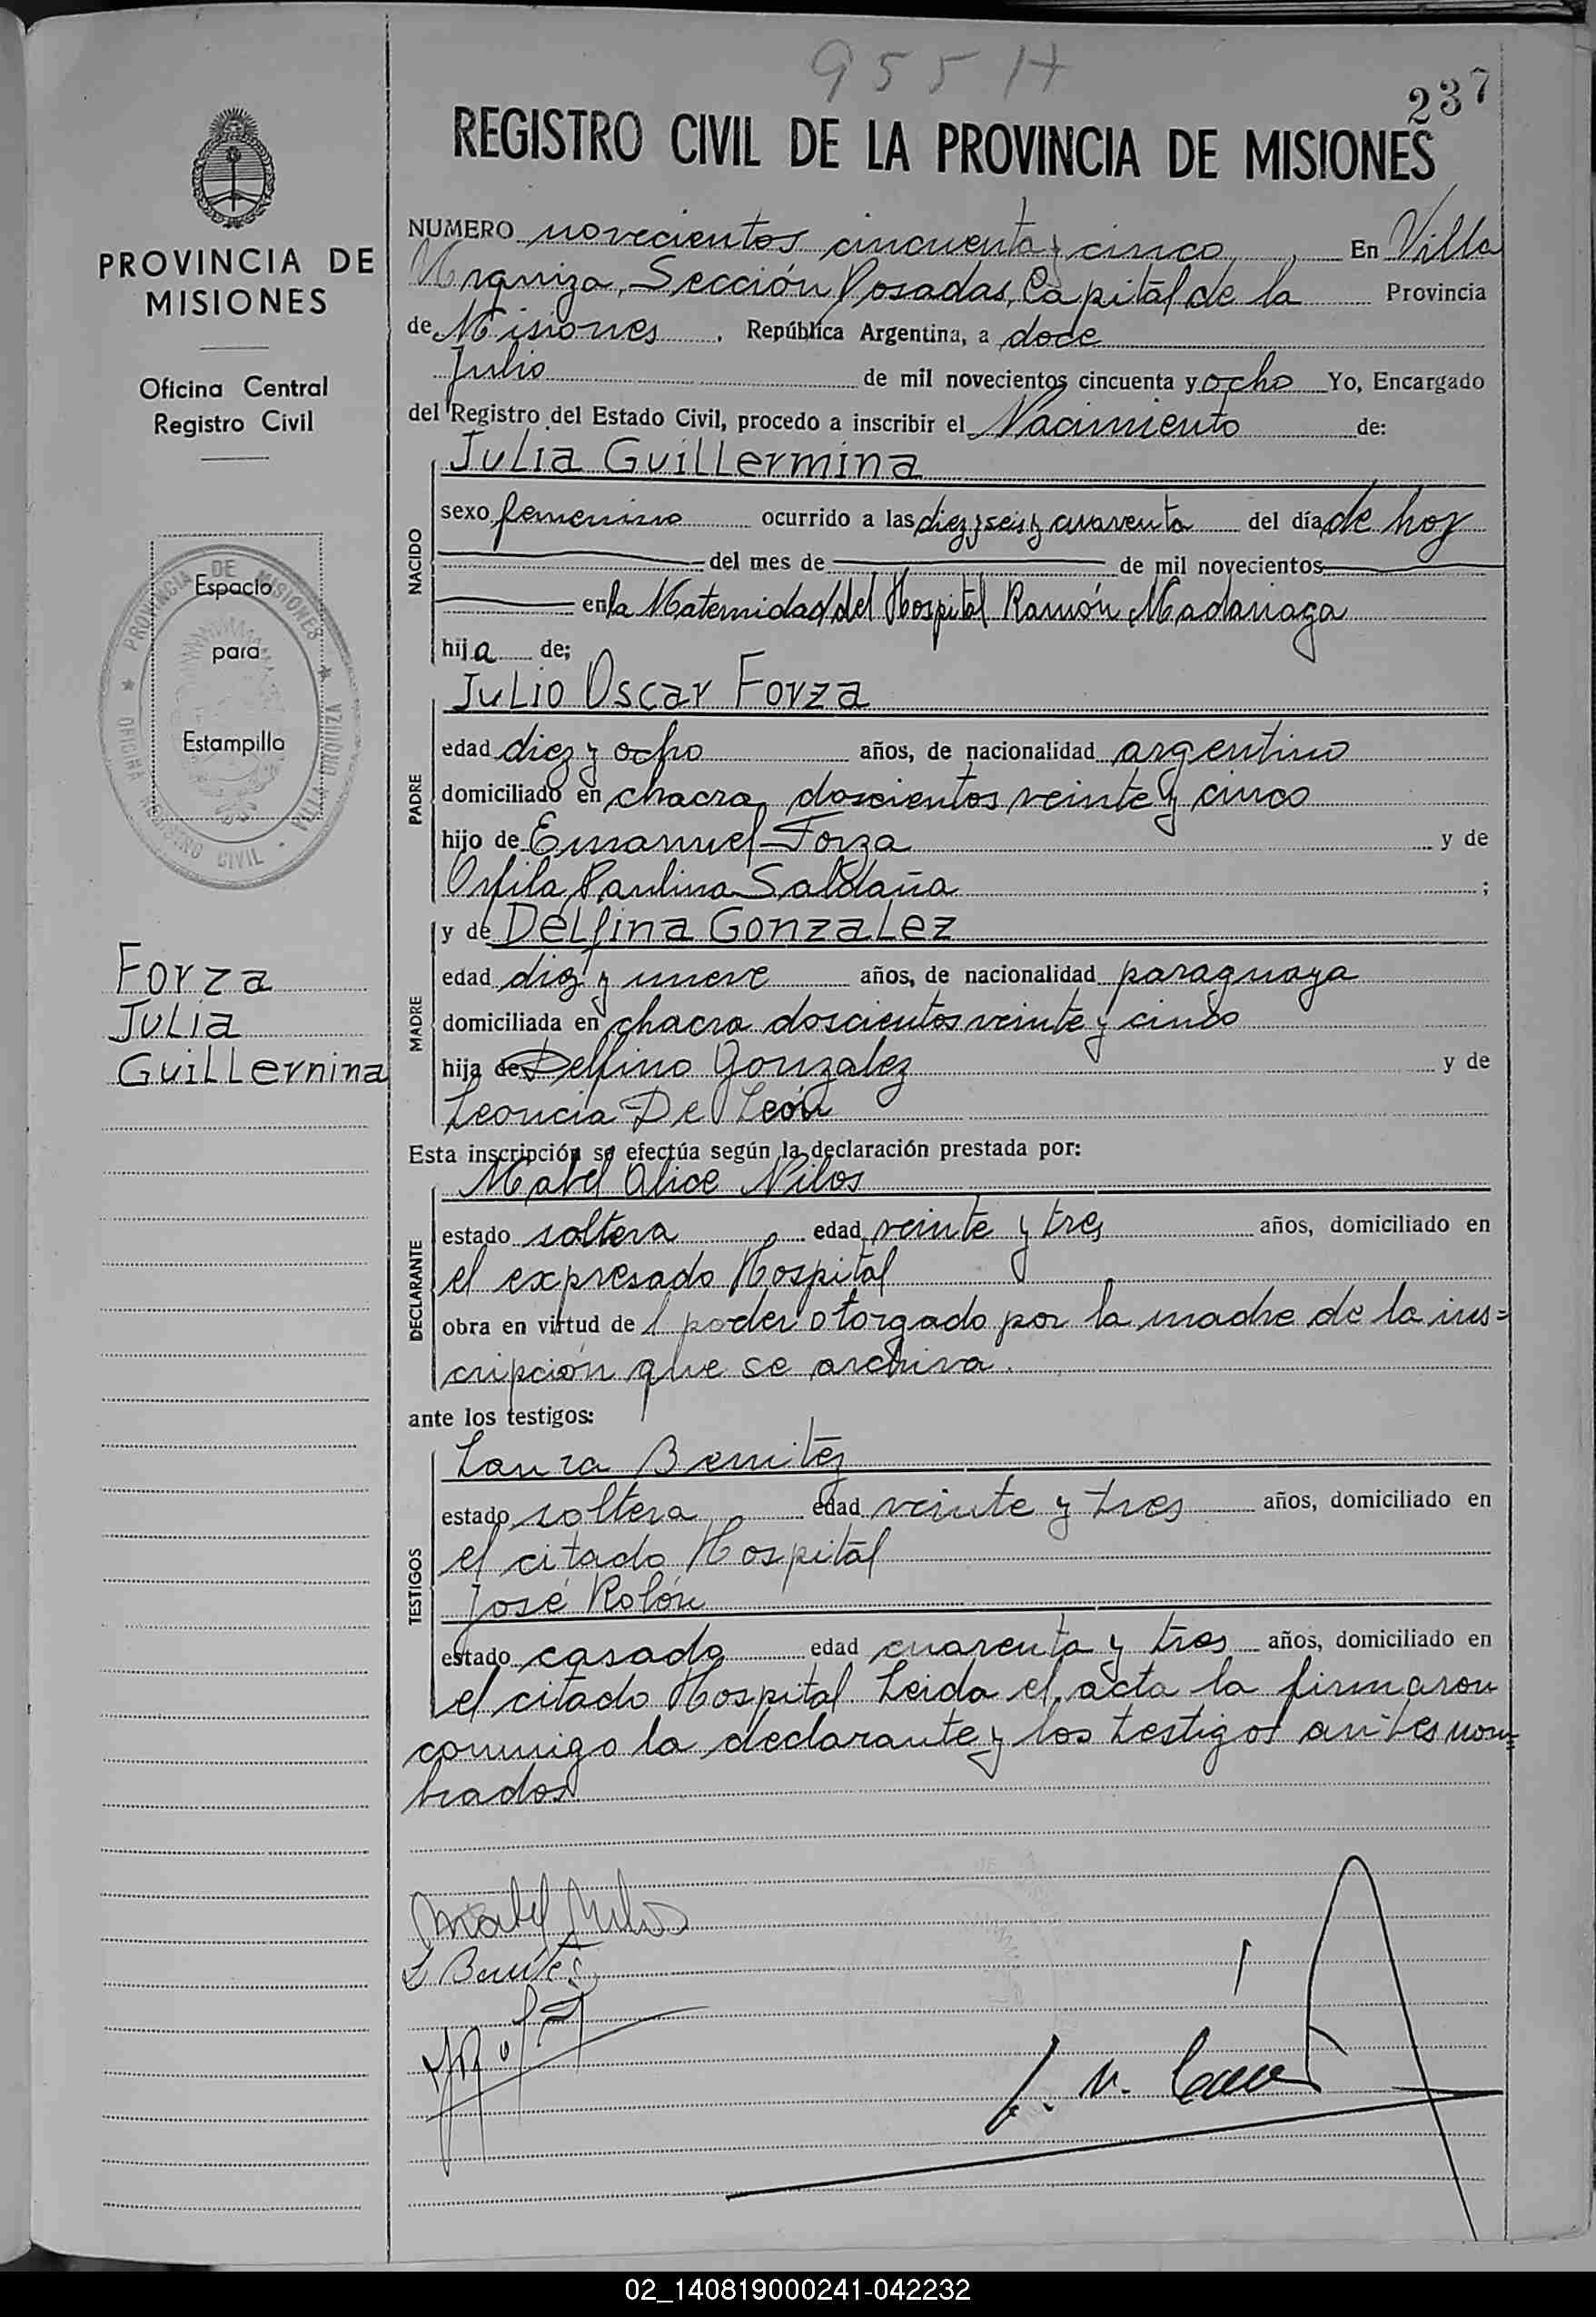 955 H
237
REGISTRO CIVIL DE LA PROVINCIA DE MISIONES
PROVINCIA DE
MISIONES
Oficina Central
Registro Civil
PROVINCIA DE MISIONES
OFICINA REGISTRO CIVIL - VILLA URQUIZA
Espacio
para
Estampilla
Forza
Julia
Guillernina
NUMERO novecientos cincuenta y cinco, En Villa
Urquiza, Sección Posadas, Capital de la Provincia
de Misiones, República Argentina, a doce
Julio de mil novecientos cincuenta y ocho Yo, Encargado
del Registro del Estado Civil, procedo a inscribir el Nacimiento de:
NACIDO
Julia Guillermina
sexo femenino ocurrido a las diez y seis y cuarenta del día de hoy
del mes de de mil novecientos
en la Maternidad del Hospital Ramón Madariaga
hija de;
PADRE
Julio Oscar Forza
edad diez y ocho años, de nacionalidad argentino
domiciliado en chacra doscientos veinte y cinco
hijo de Emanuel Forza y de
Orfila Paulina Saldaña ;
MADRE
y de Delfina Gonzalez
edad diez y nueve años, de nacionalidad paraguaya
domiciliada en chacra doscientos veinte y cinco
hija de Delfino Gonzalez y de
Leoncia De León
Esta inscripción se efectúa según la declaración prestada por:
DECLARANTE
Mabel Alice Nilos
estado soltera edad veinte y tres años, domiciliado en
el expresado Hospital
obra en virtud del poder otorgado por la madre de la ins=
cripción que se archiva.
ante los testigos:
TESTIGOS
Laura Benitez
estado soltera edad veinte y tres años, domiciliado en
el citado Hospital
José Rolón
estado casado edad cuarenta y tres años, domiciliado en
el citado Hospital. Leida el acta la firmaron
conmigo la declarante y los testigos antes nom=
brados
Mabel Nilos
L Benitez
02_140819000241-042232